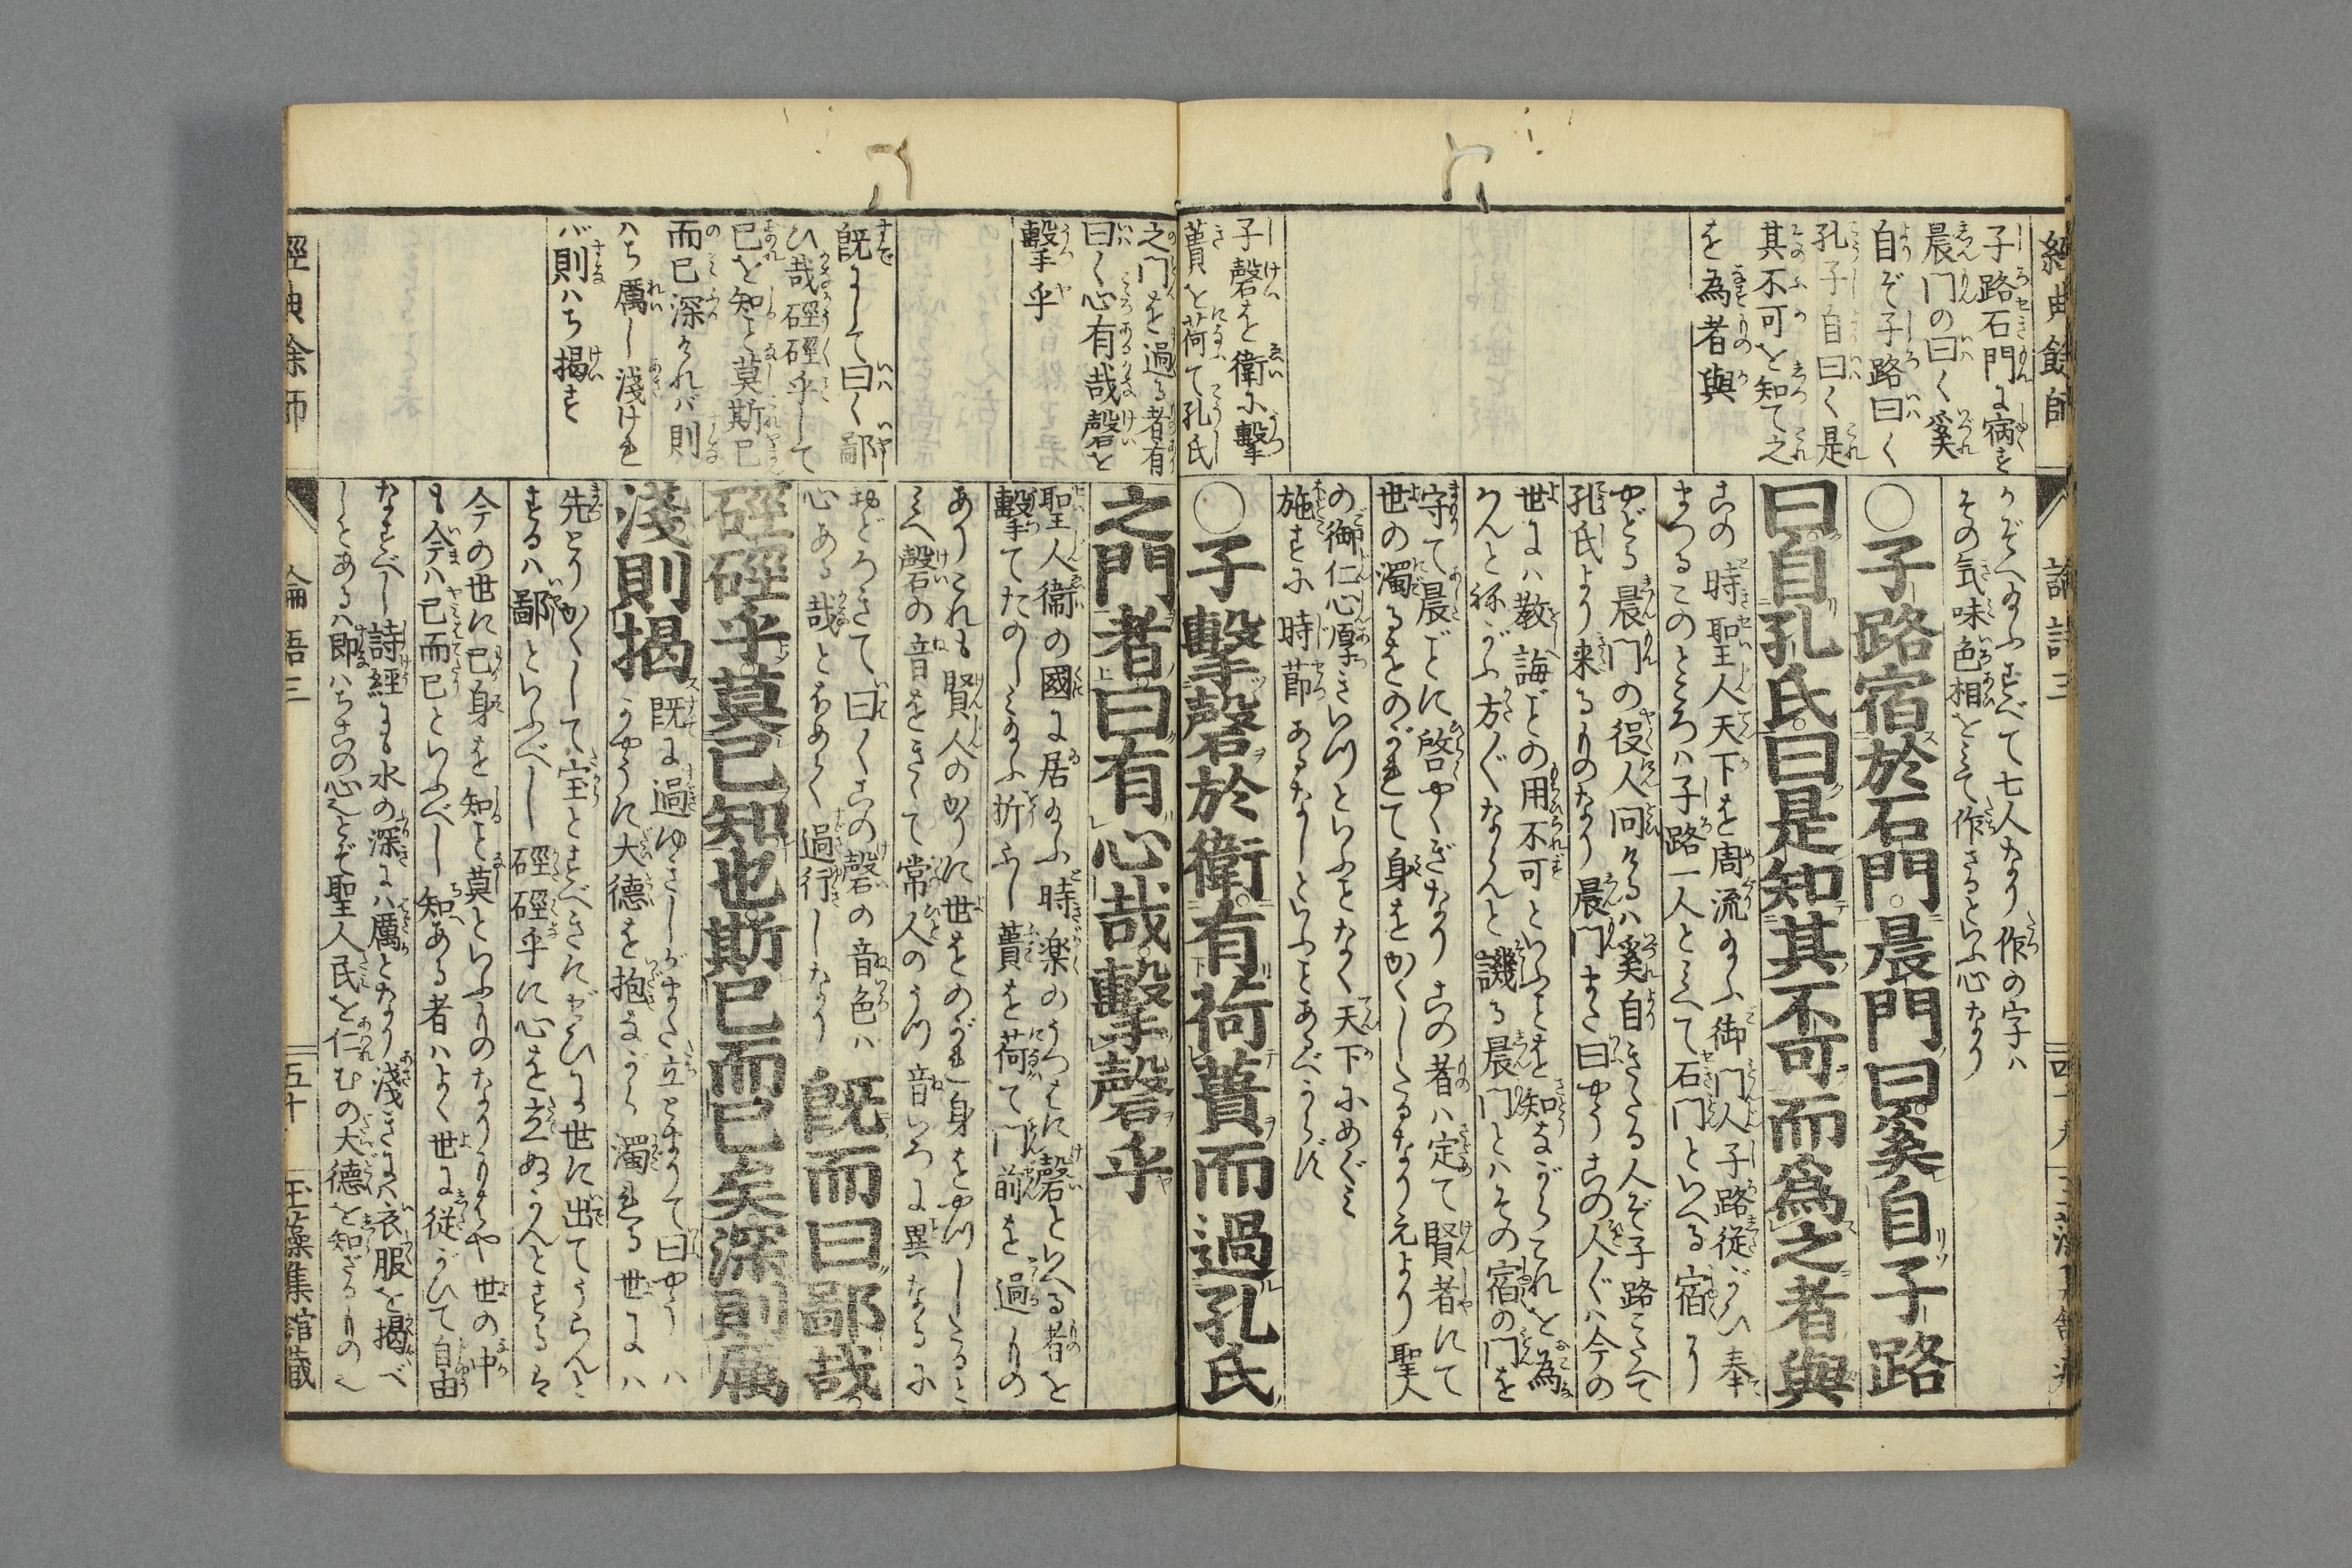 經典餘師
子路石門に病す
晨門の曰く奚
自ぞ子路曰く
孔子自曰く是
其不可を知て之
を為者與
子磬を衛に擊
蕢を荷て孔氏
論語三
かぞへ給ふすべて七人なり作の字ハ
その気味色相をミて作さるといふ心なり
○子路宿於石門。晨門曰。奚自。子路
曰。自孔氏。曰。是知其不可而爲之者與
この時聖人天下を周流給ふ御門人子路従がひ奉
まつるこのところハ子路一人とミへて石門といへる宿り
やどる晨門の役人問けるハ奚自きたる人ぞ子路こたへて
孔氏より来るものなり晨門また曰やうこの人ぐハ今の
世にハ教誨どの用不可といふことを知ながらこれを為
けんと称がふ方ぐならんと譏る晨門とハその宿の門を
守て晨ごとに啓やくぎなりこの者ハ定て賢者にて
世の濁るをのがれて身をかくしたるなりえより聖人
の御仁心厚きいつといふことなく天下にめぐミ
施すに時節あるなしといふことあるべからず
○子擊磬於衛。有荷蕢而過孔氏
之門を過る者有
曰く心有哉磬を
擊乎
既にして曰く鄙
ひ哉硜硜乎して
己を知こと莫斯已
而已深けれバ則
ハち厲し淺けれ
バ則ハち揭す
之門者。曰。有心哉擊磬乎
聖人衛の國に居給ふ時楽のうつはに磬といへる者を
擊てたのしミ給ふ折ふし蕢を荷て門前を過りもの
ありこれも賢人のかりに世をのがれ身をやつしたると
ミへ磬の音をきゝて常人のうつ音いろに異なるに
おどろきて曰くこの磬の音色ハ
心ある哉とほめく過行しなり
既而曰。鄙哉
硜硜乎。莫己知也。斯已而已矣。深則厲
淺則揭
既に過ゆきしがまた立とまりて曰やうハ
かやうに大德を抱ながら濁れる世にハ
先とりかくして宝とすべきにぜひに世に出てうらんと
するハ鄙といふべし硜硜乎に心を立ぬかんとするハ
今の世に己身を知こと莫といふものなりもはや世の中
も今ハ已而已といふべし知ある者ハよく世に従がひて自由
なすべし詩經にも水の深にハ厲となり淺きにハ衣服を揭べ
しとあるハ即ハちこの心也とぞ聖人民を仁むの大德を知ざるもの也
經典余師
論語三
五十
玉藻集館藏